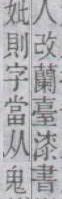 人改蘭臺漆書
妣則字當从鬼